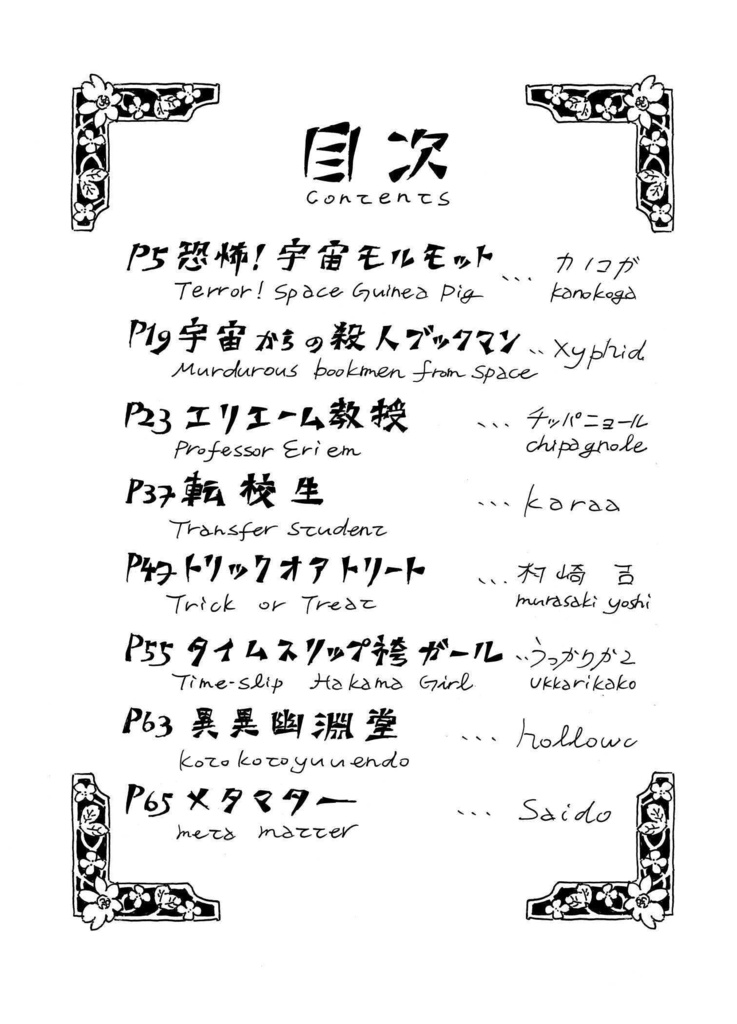 目次
Contents
P5 恐怖!宇宙モルモット ... カノコガ
Terror! Space Guinea Pig kanokoga
P19 宇宙からの殺人ブックマン .. Xyphid.
Murdurous bookmen from space
P23 エリエーム教授 ... チッパニョール
Professor Eriem chipagnole
P37 転校生 ... karaa
Transfer student
P47 トリックオアトリート ... 村崎吉
Trick or Treat murasaki yoshi
P55 タイムスリップ袴ガール .. うっかりかこ
Time-slip Hakama Girl ukkarikako
P63 異異幽淵堂 ... hollowc
kotokotoyuuendo
P65 メタマター ... Saido
meta matter